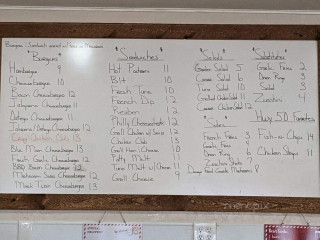 Burgers & Sandwiches served w/ Fries or Macaroni
"Burgers"
Hamburger 9
Cheeseburger 10
Bacon Cheeseburger 12
Jalapeno Cheeseburger 11
Ortega Cheeseburger 11
Jalapeno/Ortega Cheeseburger 12
Blue Moon Cheeseburger 13
Fresh Garlic Cheeseburger 12
BBQ Bacon Cheeseburger 12
Mushroom Swiss Cheeseburger 12
Mack Twin Cheeseburger 13
"Sandwiches"
Hot Pastrami 11
BLT 10
Fresh Tuna 10
French Dip 12
Reuben 12
Philly Cheesesteak 12
Grill Chicken w/ Swiss 12
Chicken Club 13
Grill Ham/Cheese 10
Patty Melt 11
Tuna Melt w/ Cheese 11
Grill Cheese 9
"Salads"
Garden Salad 5
Caesar Salad 6
Tuna Salad 10
Grilled Chicken Salad 11
Caesar Chicken Salad 12
"Sides"
French Fries 3
Garlic Fries 4
Onion Rings 6
Zucchini Sticks 7
Deep Fried Garlic Mushrooms 8
"Substitutes"
Garlic Fries 2
Onion Rings 3
Salad 3
Zucchini 4
Hwy 50 Favorites
Fish-n-Chips 14
Chicken Strips 11